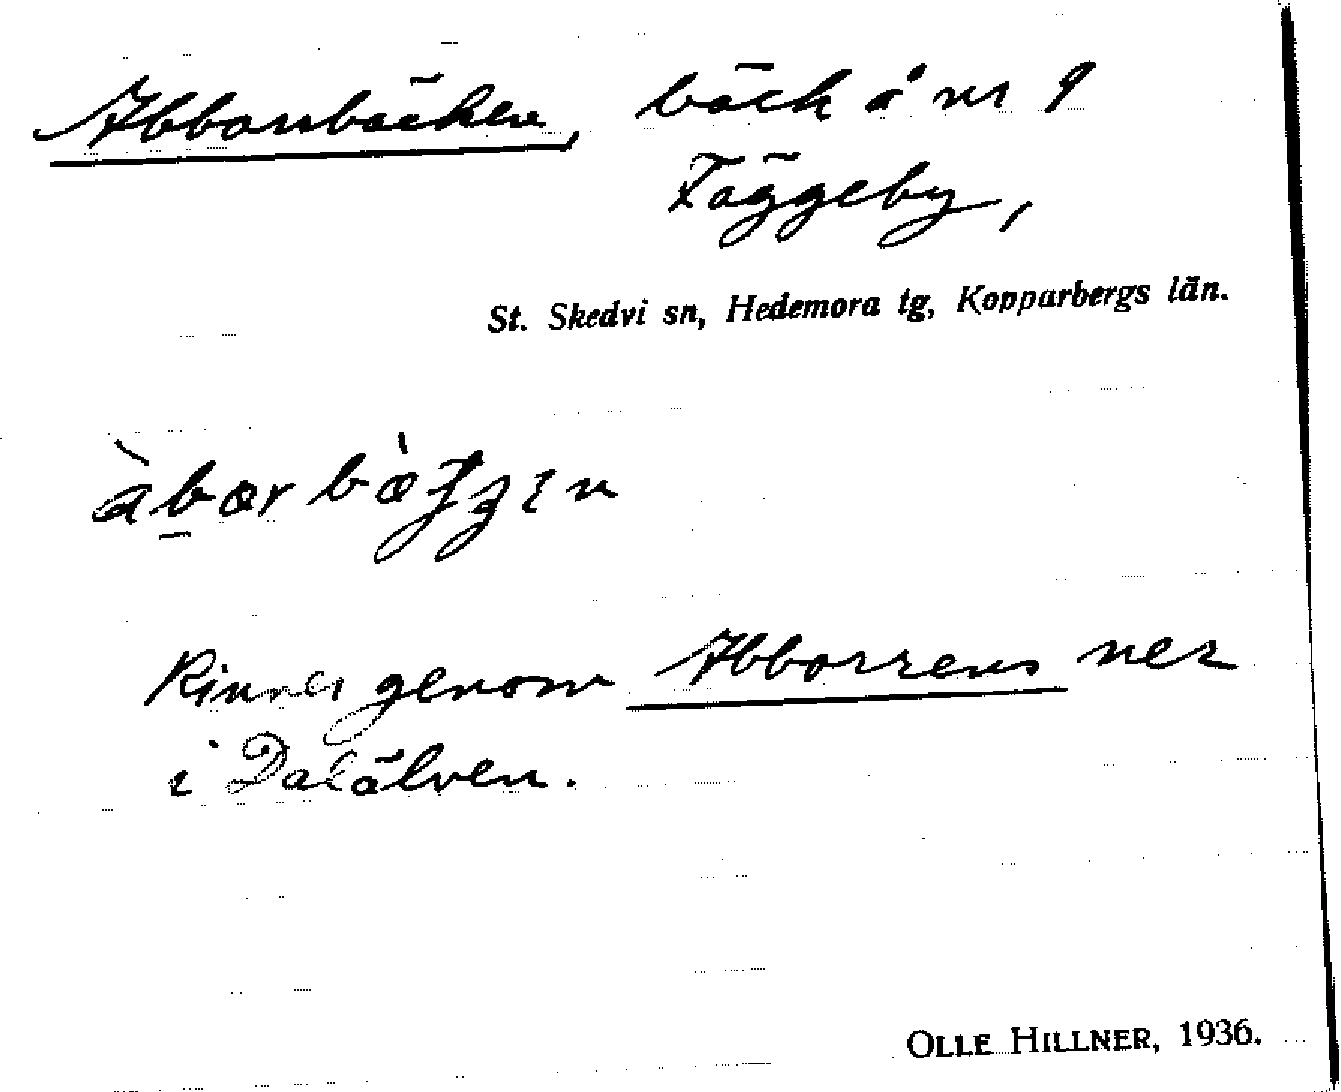 Abborrbäcken, bäck å nr 9
Fäggeby,
St. Skedvi sn, Hedemora tg, Kopparbergs län.
Rinner genom Abborrens ner
i Dalälven.
OLLE HILLNER, 1936.